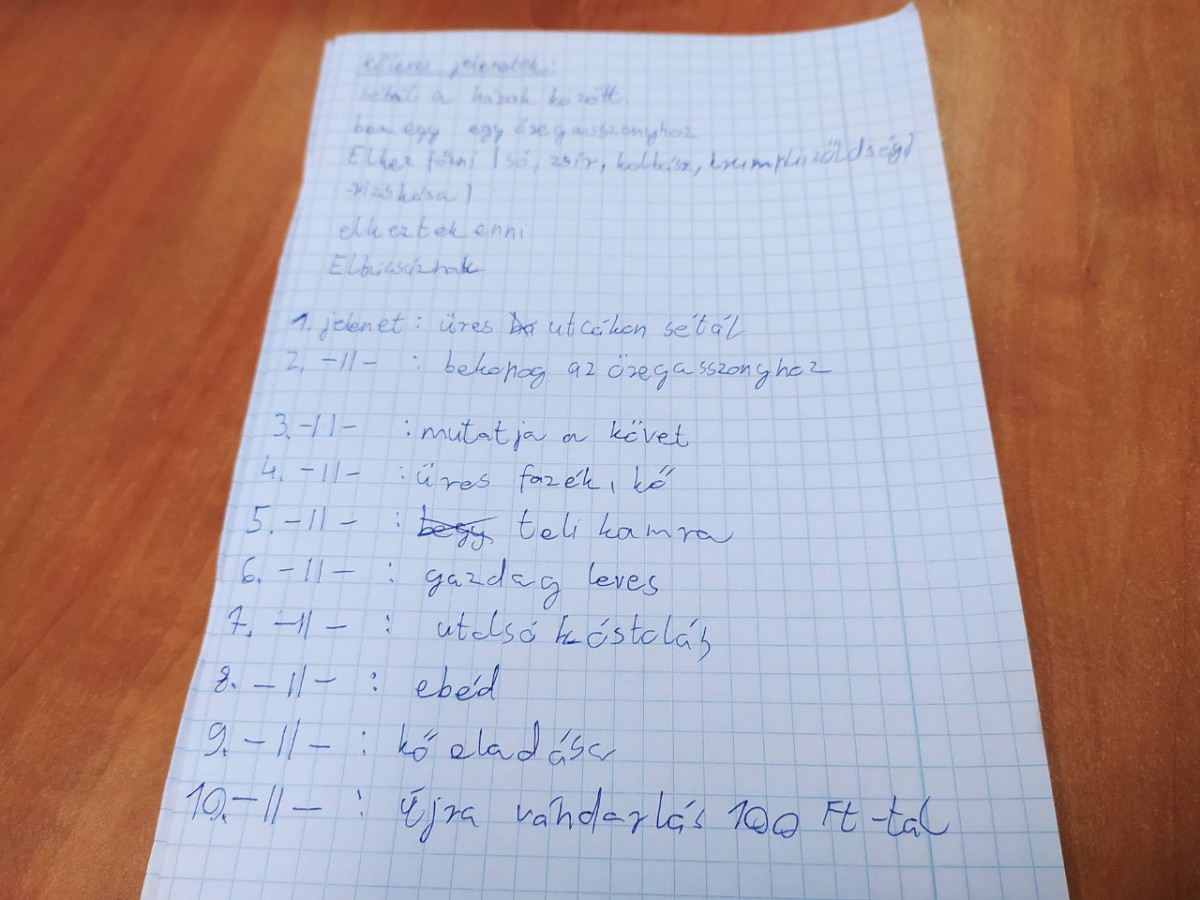 Kőleves jelenetek:
sétál a házak között.
bemegy egy öregasszonyhoz
Elkez főzni (só, zsír, kolbász, krumpli, zöldség)
rizskása)
elkeztek enni
Elbúcsúznak
1. jelenet: üres utcákon sétál
2. -11- : bekopog az öregasszonyhoz
3. -11- : mutatja a követ
4. -11- : üres fazék, kő
5. -11- : begy teli kamra
6. -11- : gazdag leves
7. -11- : utolsó kóstolás
8. -11- : ebéd
9. -11- : kő eladása
10. -11- : újra vándarlás 100 Ft-tal